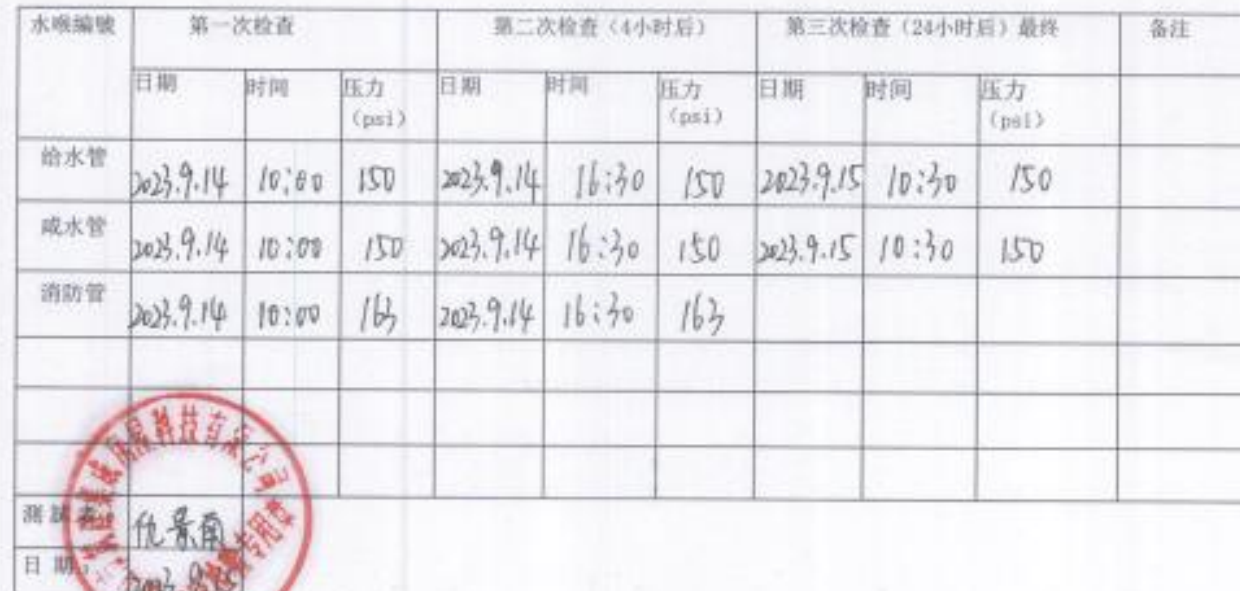 水喉编號 第一次检查 第二次检查（4小时后） 第三次检查（24小时后）最终 备注
日期 时间 压力（psi） 日期 时间 压力（psi） 日期 时间 压力（psi）
给水管 2023.9.14 10:00 150 2023.9.14 16:30 150 2023.9.15 10:30 150
咸水管 2023.9.14 10:00 150 2023.9.14 16:30 150 2023.9.15 10:30 150
消防管 2023.9.14 10:00 163 2023.9.14 16:30 163
科技有限公司
专用章
测试者：
日期：